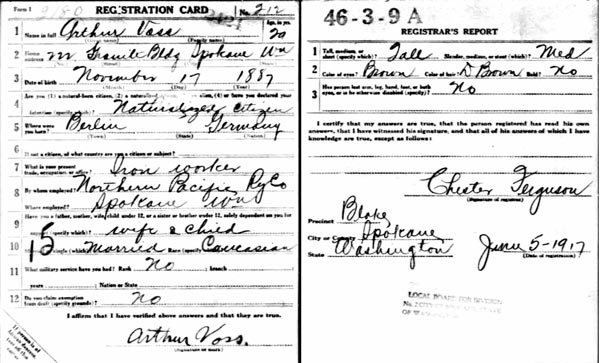 Form 1 REGISTRATION CARD No. 212
1 Name in full Arthur Voss Age, in yrs.
(Given name) (Family name) 29
2 Home address Granite Bldg Spokane Wn
3 Date of birth November 17 1887
(Month) (Day) (Year)
4 Are you (1) a natural-born citizen, (2) a naturalized citizen, (3) an alien, (4) or have you declared your
intention (specify which)? Naturalized Citizen
5 Where were you born? Berlin Germany
(Town) (State) (Nation)
6 If not a citizen, of what country are you a citizen or subject?
7 What is your present trade, occupation, or office? Iron worker
8 By whom employed? Northern Pacific Ry Co
Where employed? Spokane Wn
9 Have you a father, mother, wife, child under 12, or a sister or brother under 12, solely dependent on you for
support (specify which)? wife & child
10 Married or single (which)? Married Race (specify which)? Caucasian
11 What military service have you had? Rank No ; branch
years ; Nation or State
12 Do you claim exemption from draft (specify grounds)? No
I affirm that I have verified above answers and that they are true.
Arthur Voss
(Signature or mark)
46-3-9 A
REGISTRAR'S REPORT
1 Tall, medium, or short (specify which)? Tall Slender, medium, or stout (which)? Med
2 Color of eyes? Brown Color of hair? D Brown Bald? No
3 Has person lost arm, leg, hand, foot, or both eyes, or is he otherwise disabled (specify)? No
I certify that my answers are true, that the person registered has read his own
answers, that I have witnessed his signature, and that all of his answers of which I have
knowledge are true, except as follows:
Chester Ferguson
(Signature of registrar)
Precinct Blake
City or County Spokane
State Washington June 5-1917
(Date of registration)
LOCAL BOARD FOR DIVISION